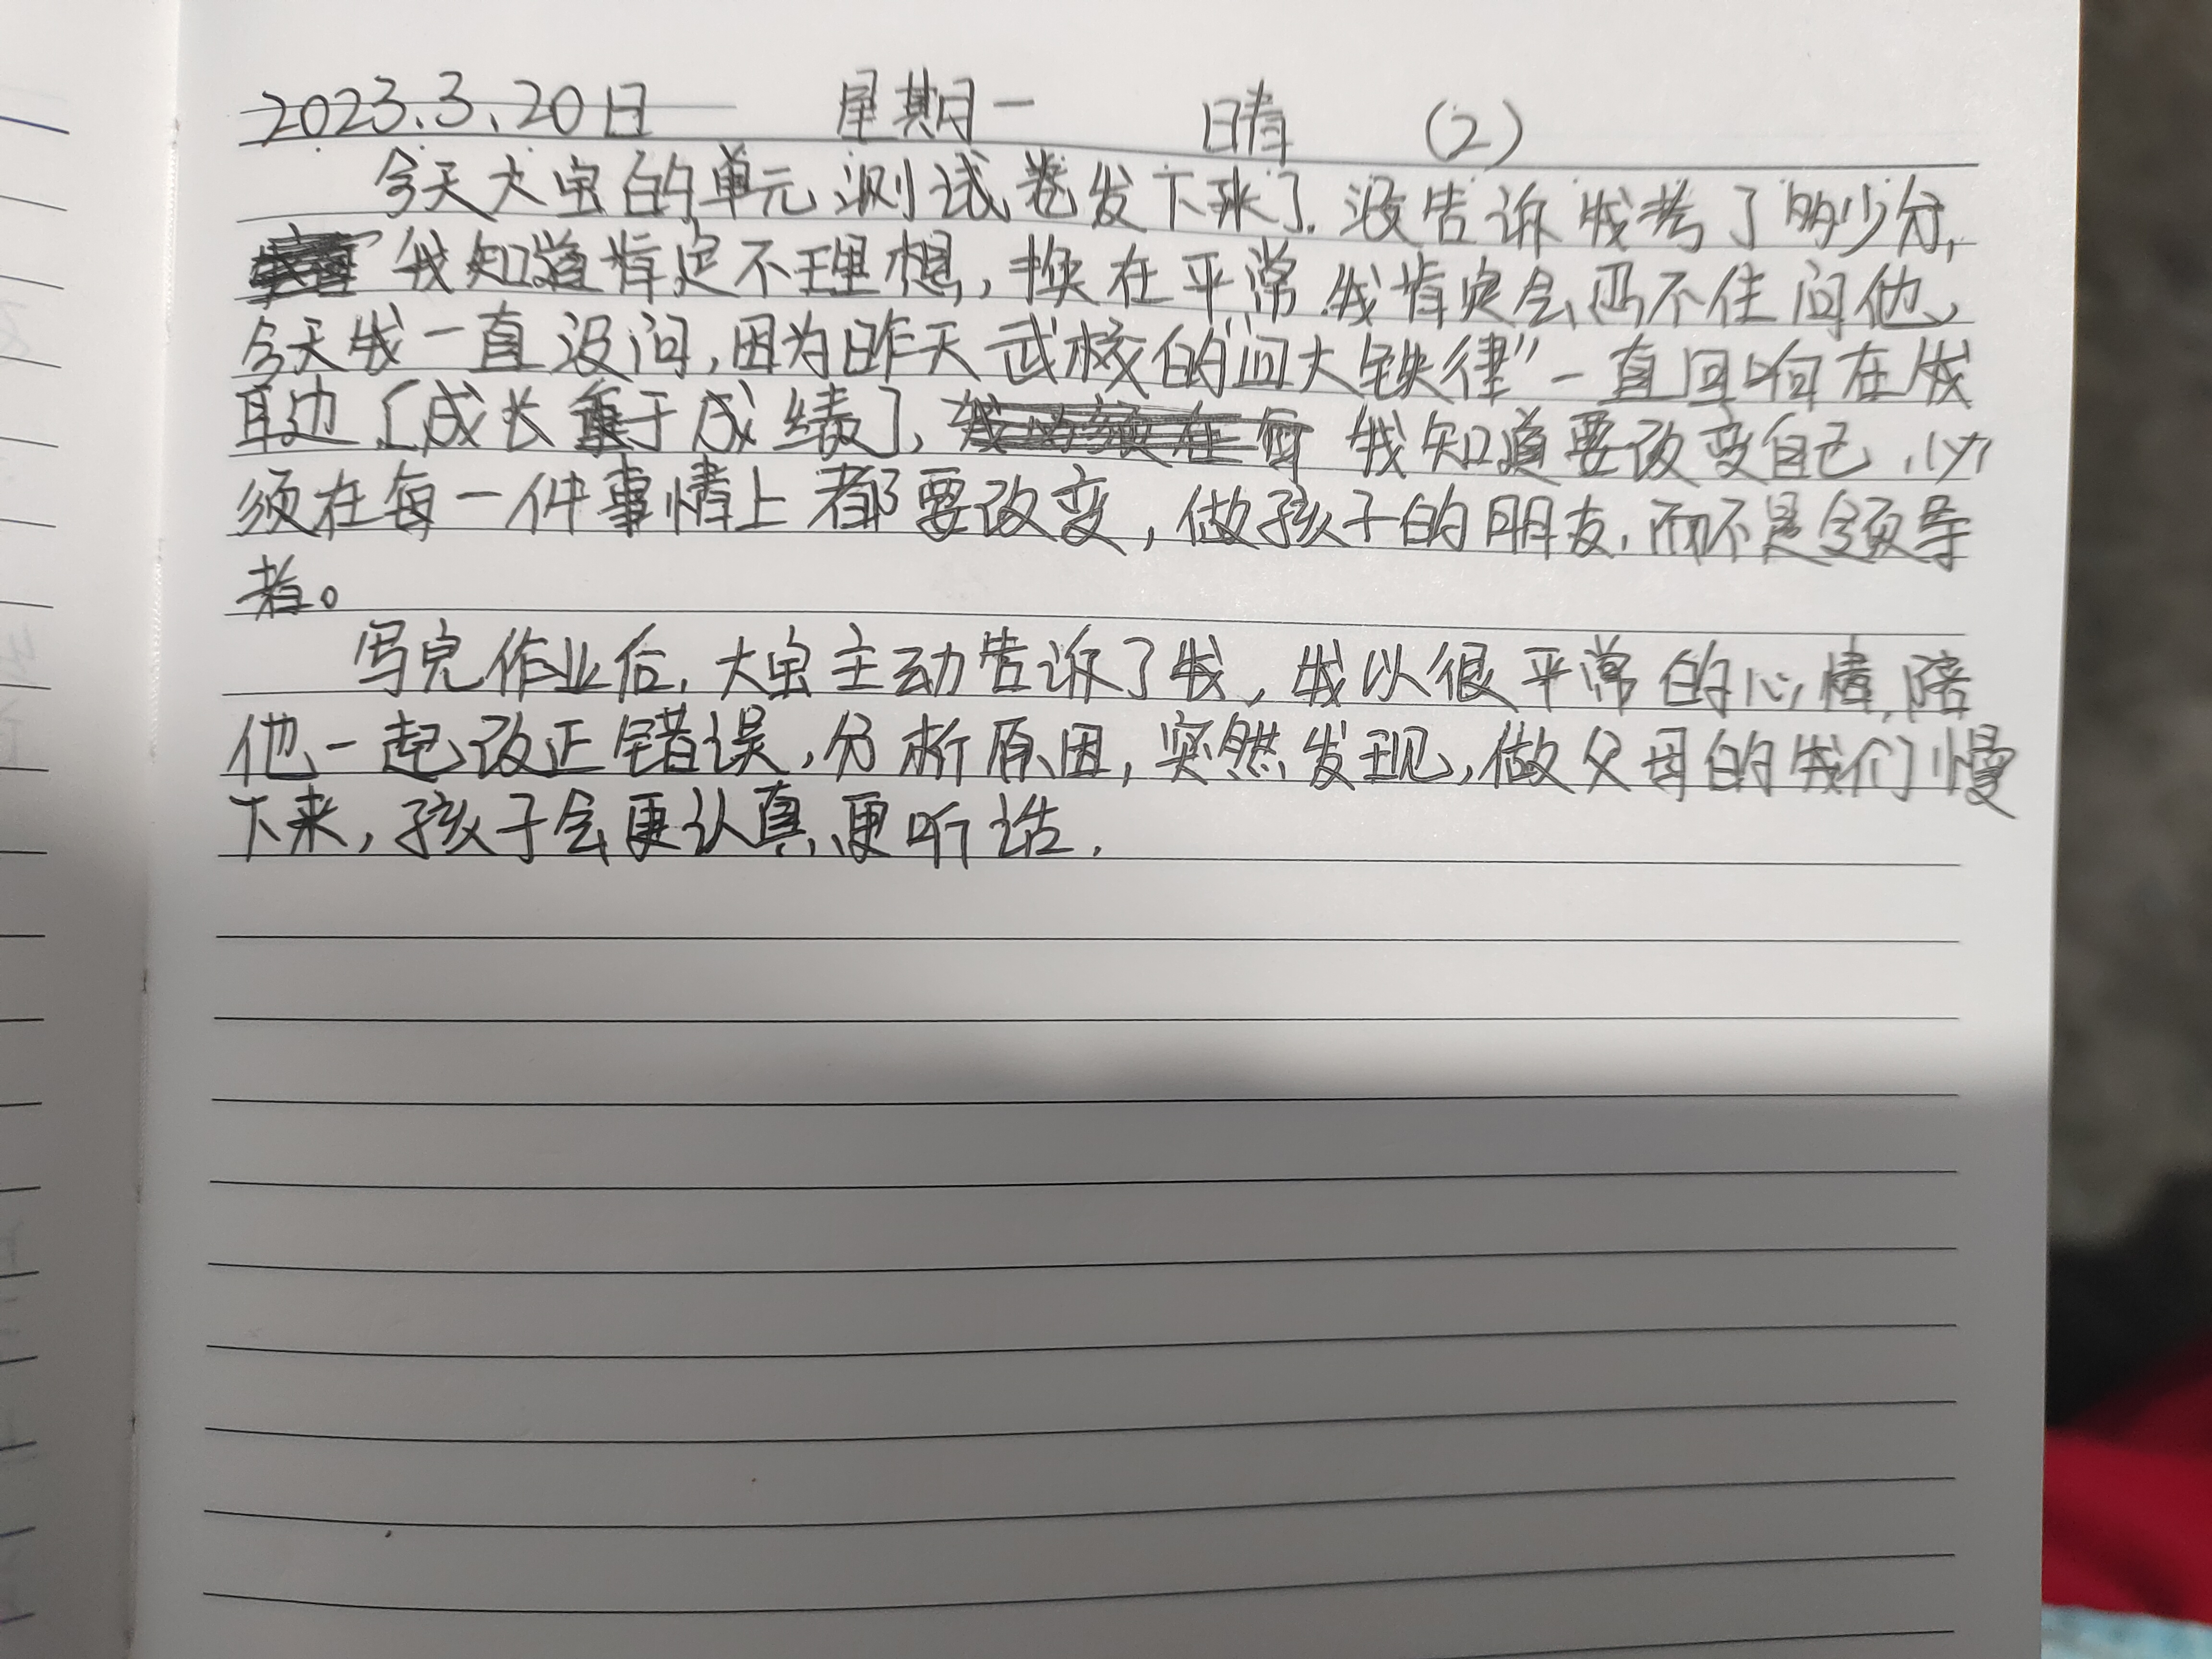 2023.3.20日 星期一 晴 (2)
今天大宝的单元测试卷发下来了.没告诉我考了多少分,
我知道肯定不理想,换在平常.我肯定会忍不住问他,
今天我一直没问,因为昨天武校的"四大铁律"一直回响在我
耳边[成长重于成绩], 我知道要改变自己,必
须在每一件事情上都要改变,做孩子的朋友.而不是领导
者。
写完作业后,大宝主动告诉了我,我以很平常的心情,陪
他一起改正错误,分析原因,突然发现,做父母的我们慢
下来,孩子会更认真、更听话.